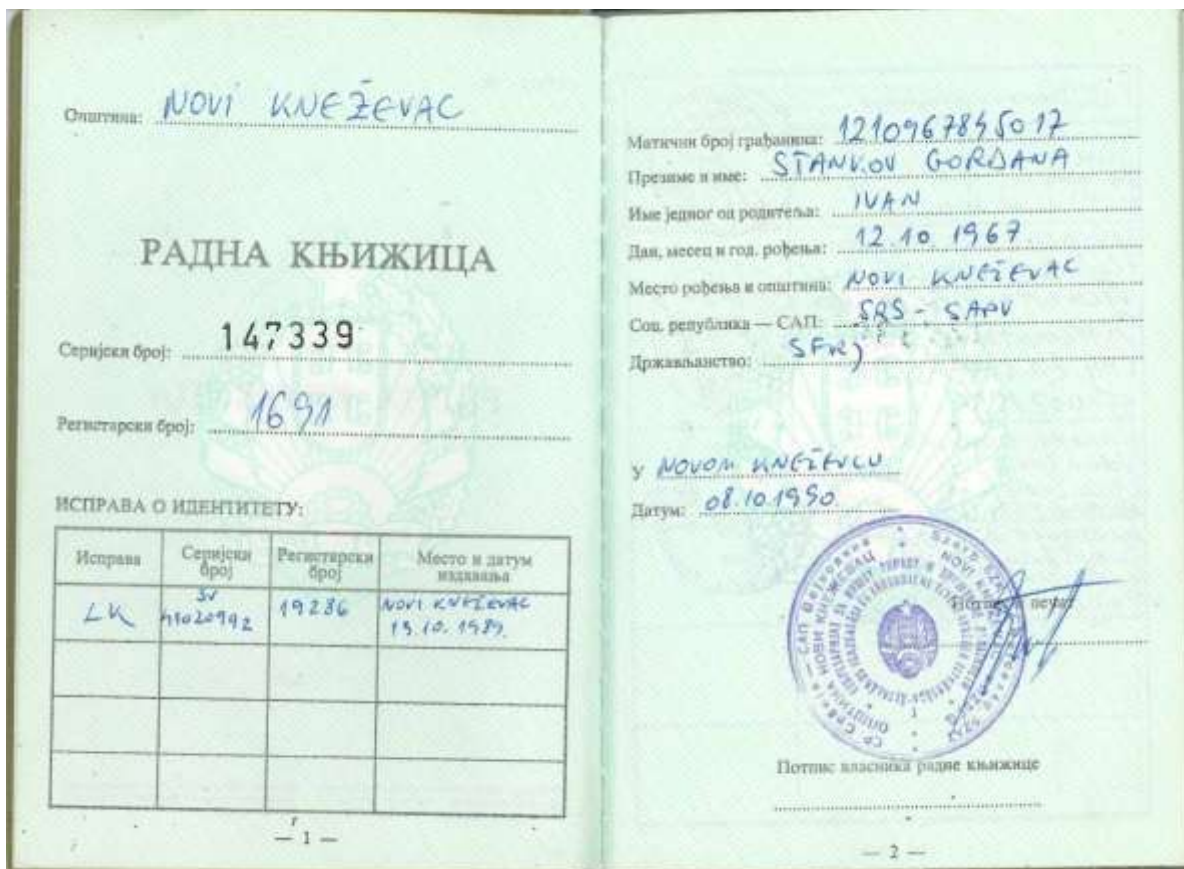 Општина: NOVI KNEŽEVAC
РАДНА КЊИЖИЦА
Серијски број: 147339
Регистарски број: 1691
ИСПРАВА О ИДЕНТИТЕТУ:
Исправа Серијски број Регистарски број Место и датум издавања
LK 19286 NOVI KNEŽEVAC
— 1 —
Матични број грађанина: 1210967845017
Презиме и име: STANKOV GORDANA
Име једног од родитеља: IVAN
Дан, месец и год. рођења: 12.10.1967.
Место рођења и општина: NOVI KNEŽEVAC
Соц. република — САП: SRS - SAPV
Држављанство: SFRJ
У NOVOM KNEŽEVCU
Датум: 08.10.1990.
Потпис и печат
Потпис власника радне књижице
— 2 —